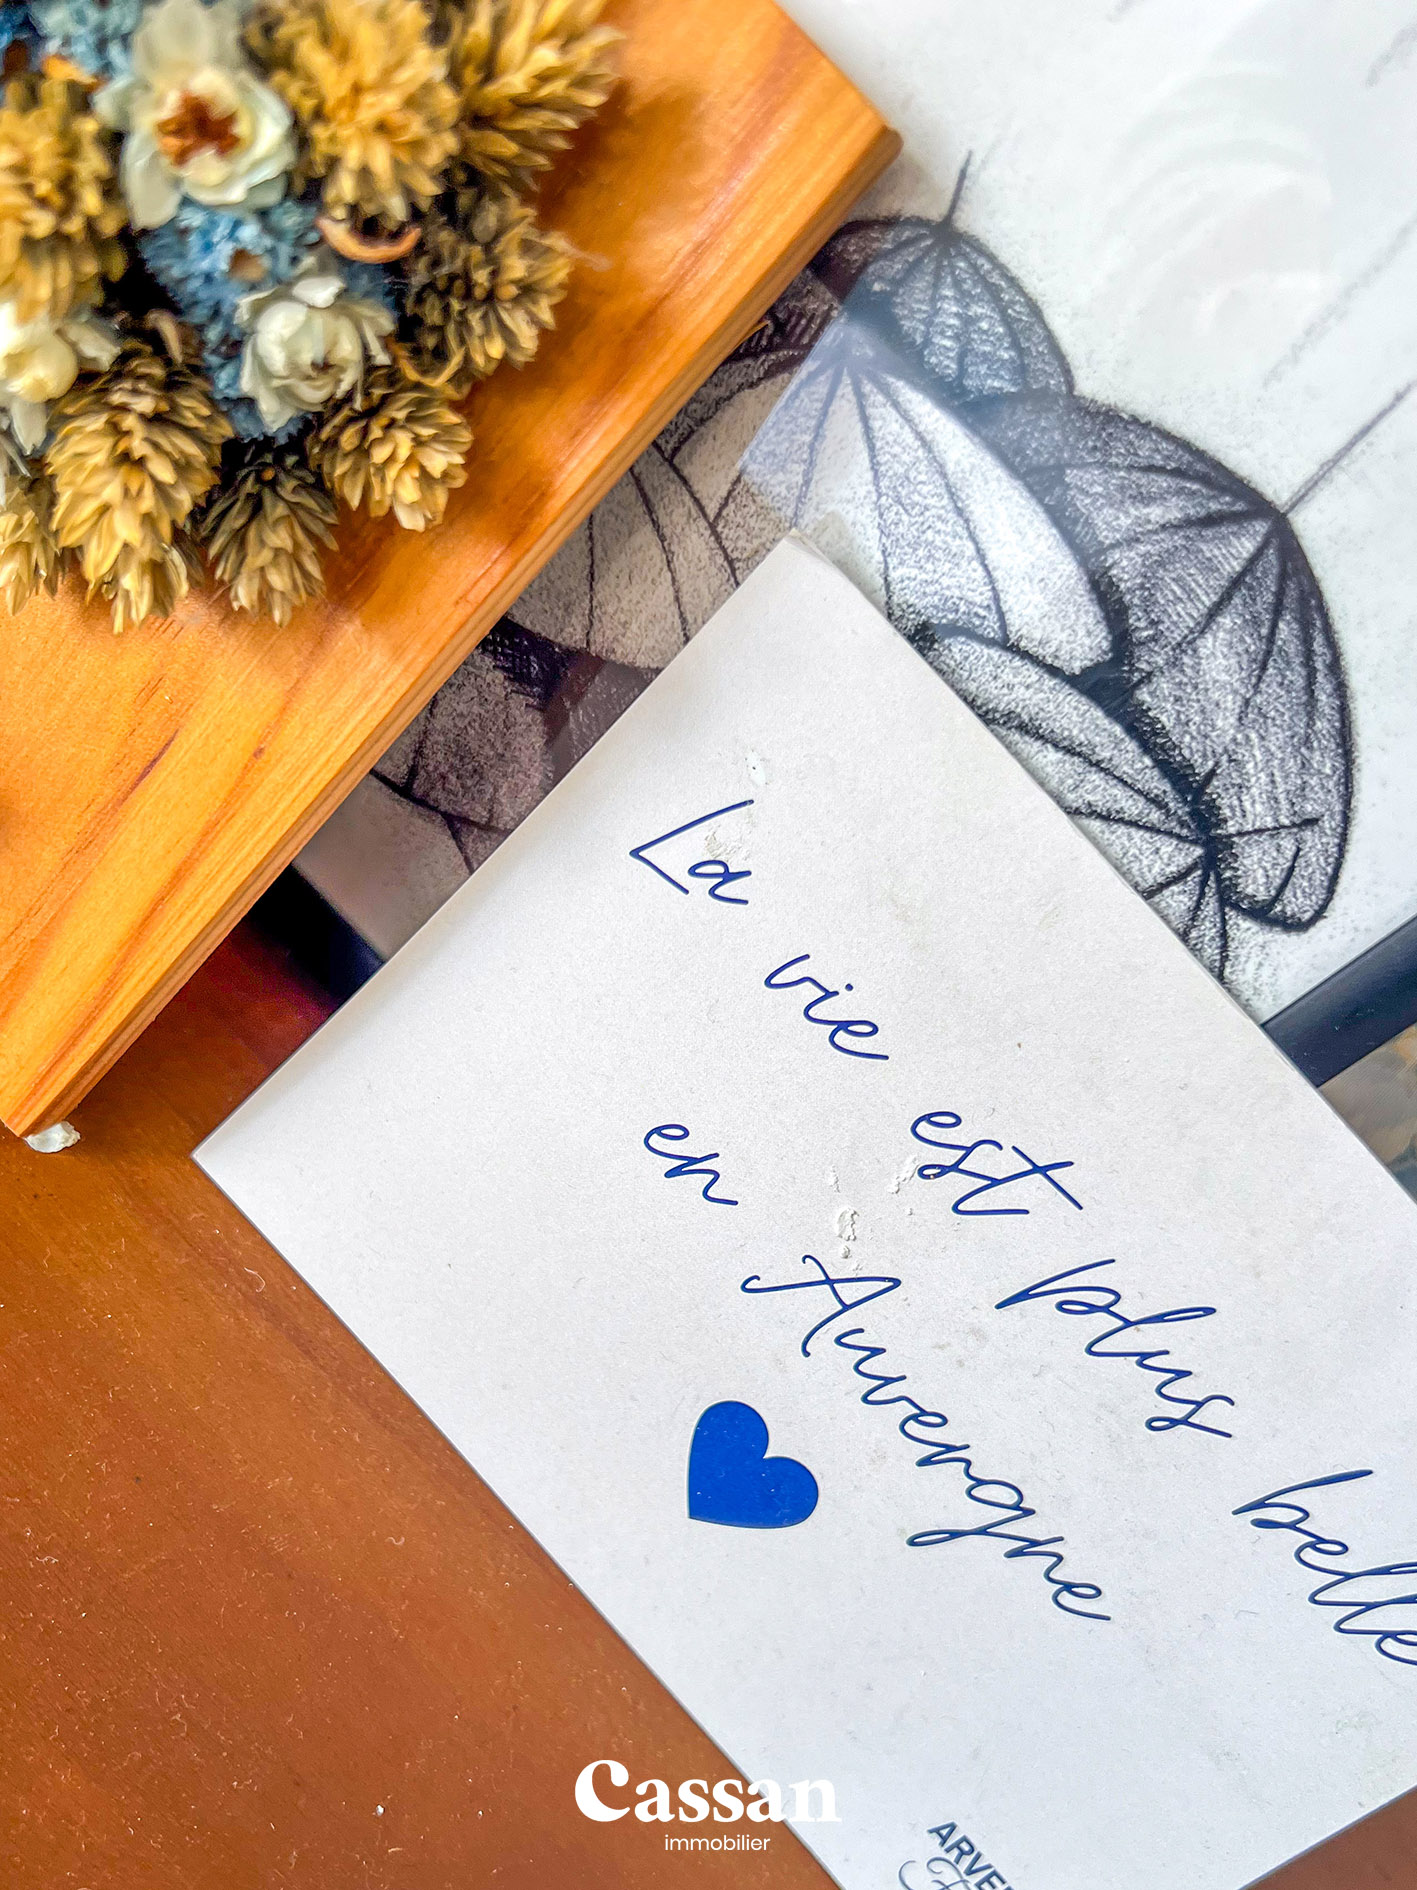 La vie est plus belle
en Auvergne
Cassan
immobilier